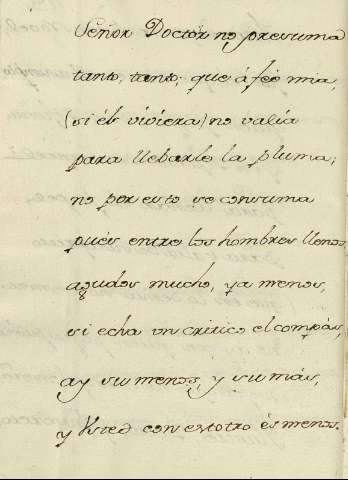 Señor Doctòr no presuma
tanto, tanto; que à feè mia,
(si él viviera) no valia
para llebarle la pluma;
no por esto se consuma
pués entre los hombres llenos
agudos mucho, ya menos,
si echa un critico el compás,
ay su menos, y su más,
y Usted con estotro és menos.